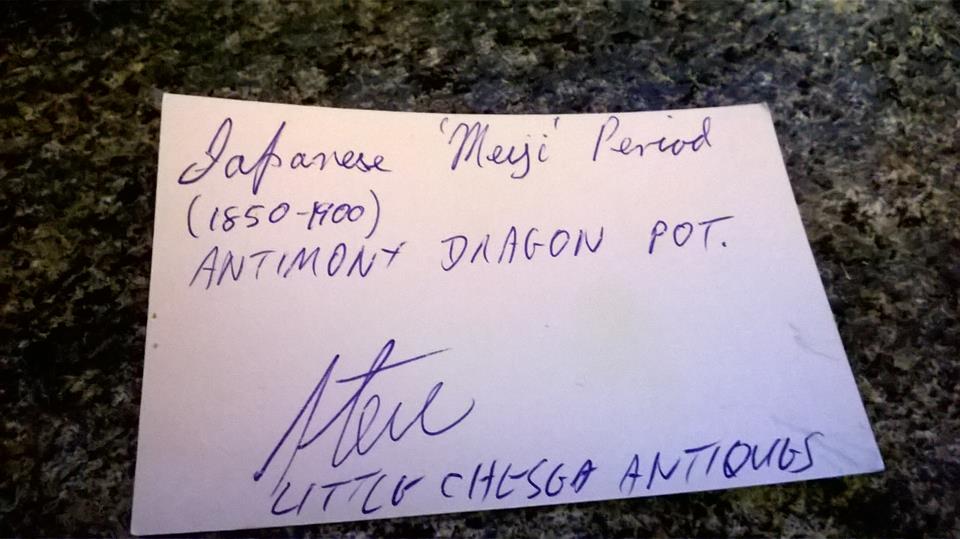 Japanese 'Meiji' Period
(1850-1900)
ANTIMONY DRAGON POT.
Steve
LITTLE CHESEA ANTIQUES